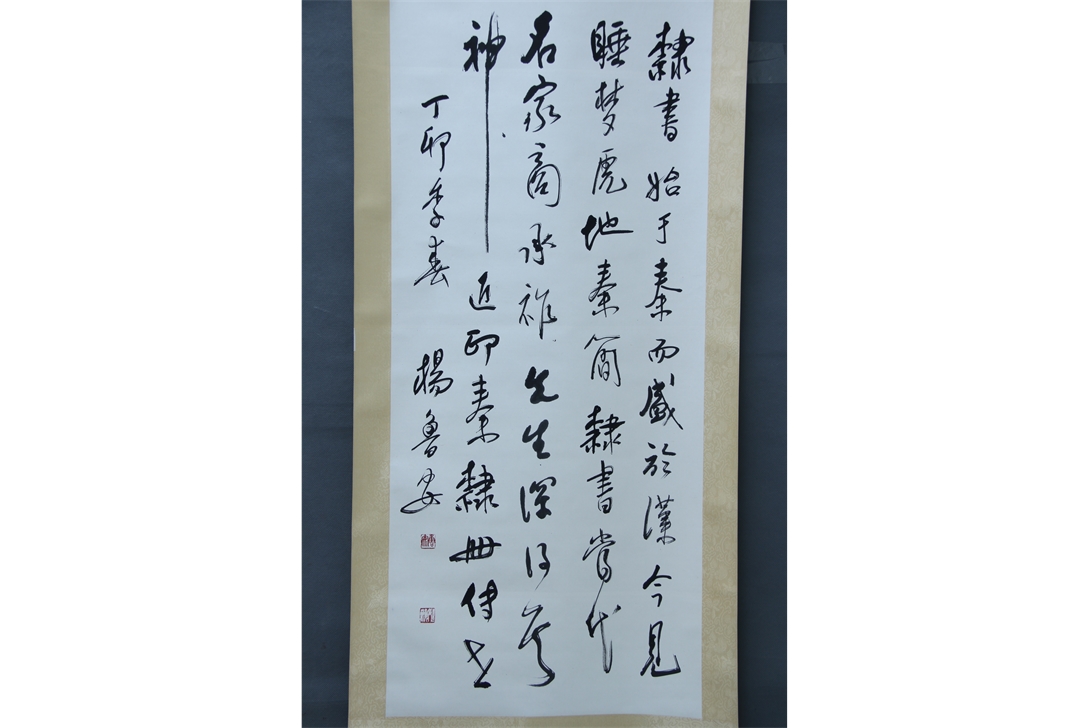 隸書始于秦而盛於漢今見
睡梦虎地秦簡隸書當代
名家商承祚先生深得其
神近印秦隸册付世
丁卯季春
楊魯安